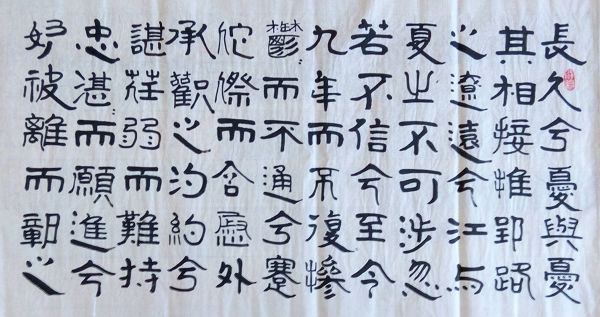 長久兮憂與憂
其相接惟郢路
之遼遠兮江与
夏之不可涉忽
若不信兮至今
九年而不復慘
鬱〻而不通兮蹇
侘傺而含慼外
承歡之汋約兮
諶荏弱而難持
忠湛〻而願進兮
妒被離而鄣之